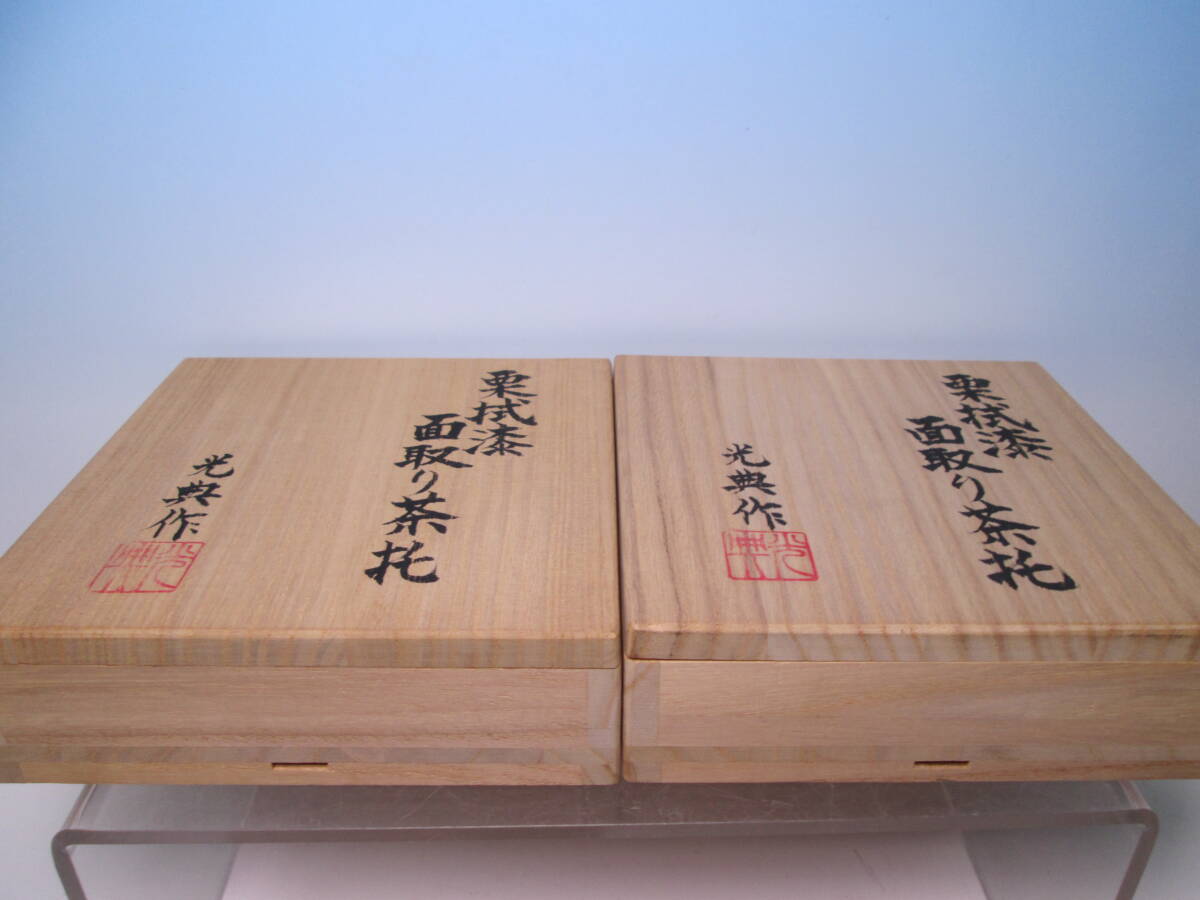 栗拭漆
面取り茶托
光典作
光典
栗拭漆
面取り茶托
光典作
光典